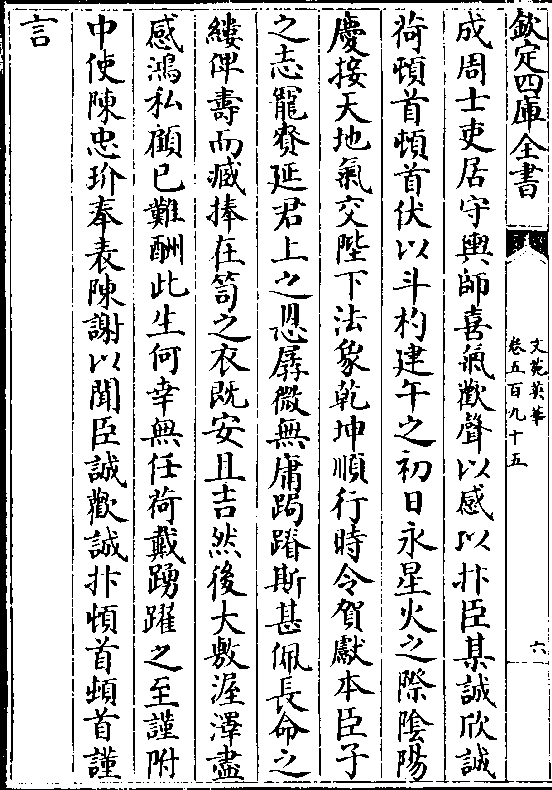 欽定四庫全書
文苑英華
卷五百九十五
六
成周士吏居守輿師喜氣歡聲以感以抃臣某誠欣誠
荷頓首頓首伏以斗杓建午之初日永星火之際陰陽
慶接天地氣交陛下法象乾坤順行時令賀獻本臣子
之志寵賚延君上之恩孱微無庸跼蹐斯甚佩長命之
縷俾壽而臧捧在笥之衣既安且吉然後大敷渥澤盡
感鴻私顧已難酬此生何幸無任荷戴踴躍之至謹附
中使陳忠玠奉表陳謝以聞臣誠歡誠抃頓首頓首謹
言